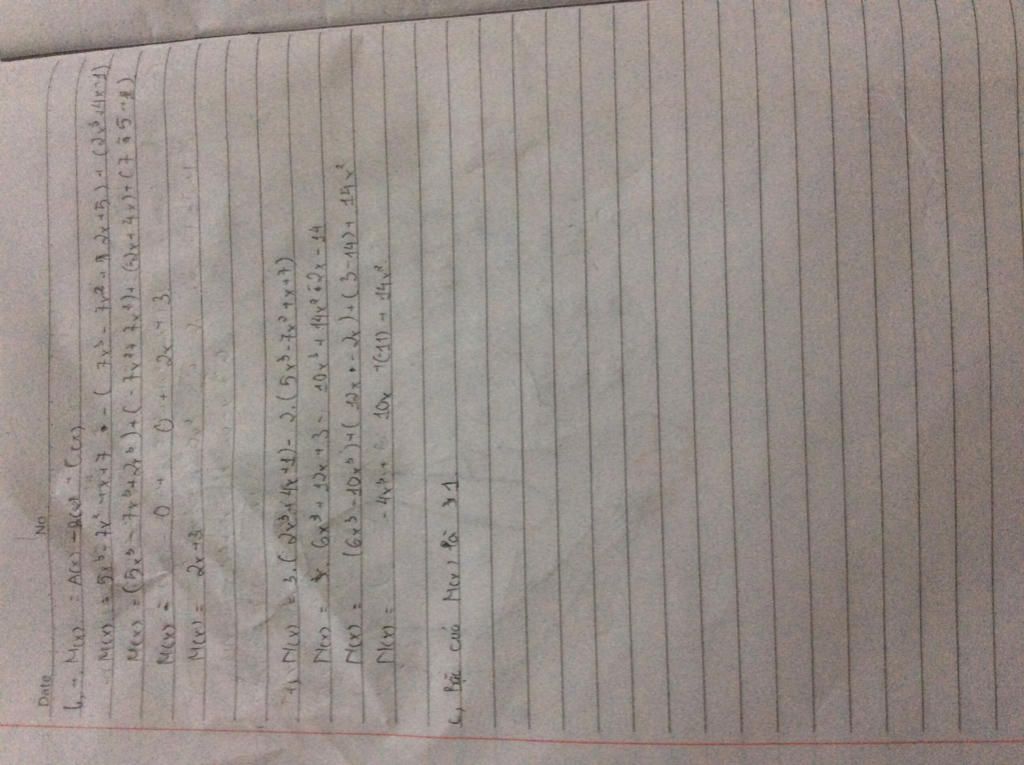 Date No
b, - M(x) = A(x) - B(x) + C(x)
M(x) = 5x³ - 7x² + x + 7 - ( 7x³ - 7x² + 2x + 5 ) + (2x³ + 4x + 1)
M(x) = (5x³ - 7x³ + 2x³) + ( - 7x² + 7x²) + (2x + 4x) + ( 7 5
M(x) = 0 + 0 + 2x + 3
M(x) = 2x + 3
N(x) = 3. ( 2x³ + 4x + 1) - 2. ( 5x³ - 7x² + x + 7)
N(x) = 6x³ + 12x + 3 - 10x³ + 14x² - 2x - 14
N(x) = (6x³ - 10x³) + ( 12x - 2x ) + ( 3 - 14) + 14x²
N(x) = - 4x³ + 10x + (-11) + 14x²
c, Bậc của M(x) là 1